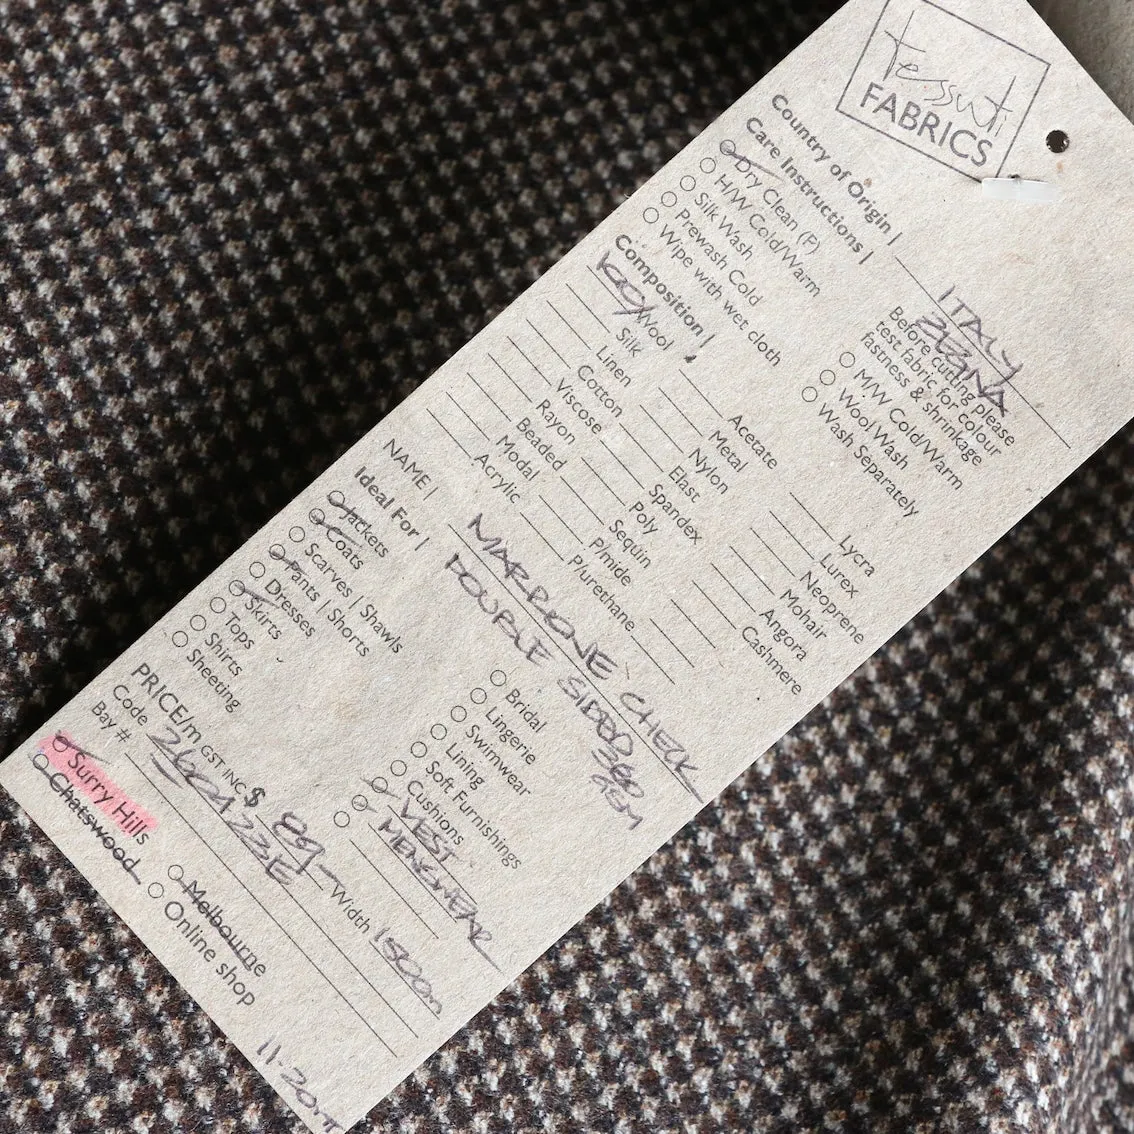 tessuti
FABRICS
Country of Origin | ITALY
ZEGNA
Care Instructions |
Dry Clean (P)
H/W Cold/Warm
Silk Wash
Prewash Cold
Wipe with wet cloth
Before cutting please
test fabric for colour
fastness & shrinkage
M/W Cold/Warm
Wool Wash
Wash Separately
Composition |
100% Wool
Silk
Linen
Cotton
Viscose
Rayon
Beaded
Modal
Acrylic
Acetate
Metal
Nylon
Elast
Spandex
Poly
Sequin
P/mide
P/urethane
Lycra
Lurex
Neoprene
Mohair
Angora
Cashmere
NAME | MARRONE CHECK
DOUBLE SIDED
Ideal For |
Jackets
Coats
Scarves | Shawls
Pants | Shorts
Dresses
Skirts
Tops
Shirts
Sheeting
Bridal
Lingerie
Swimwear
Lining
Soft Furnishings
Cushions
VEST
MENSWEAR
PRICE/m GST INC $ 89- Width 150cm
Code
Bay #
Surry Hills
Chatswood
Melbourne
Online shop